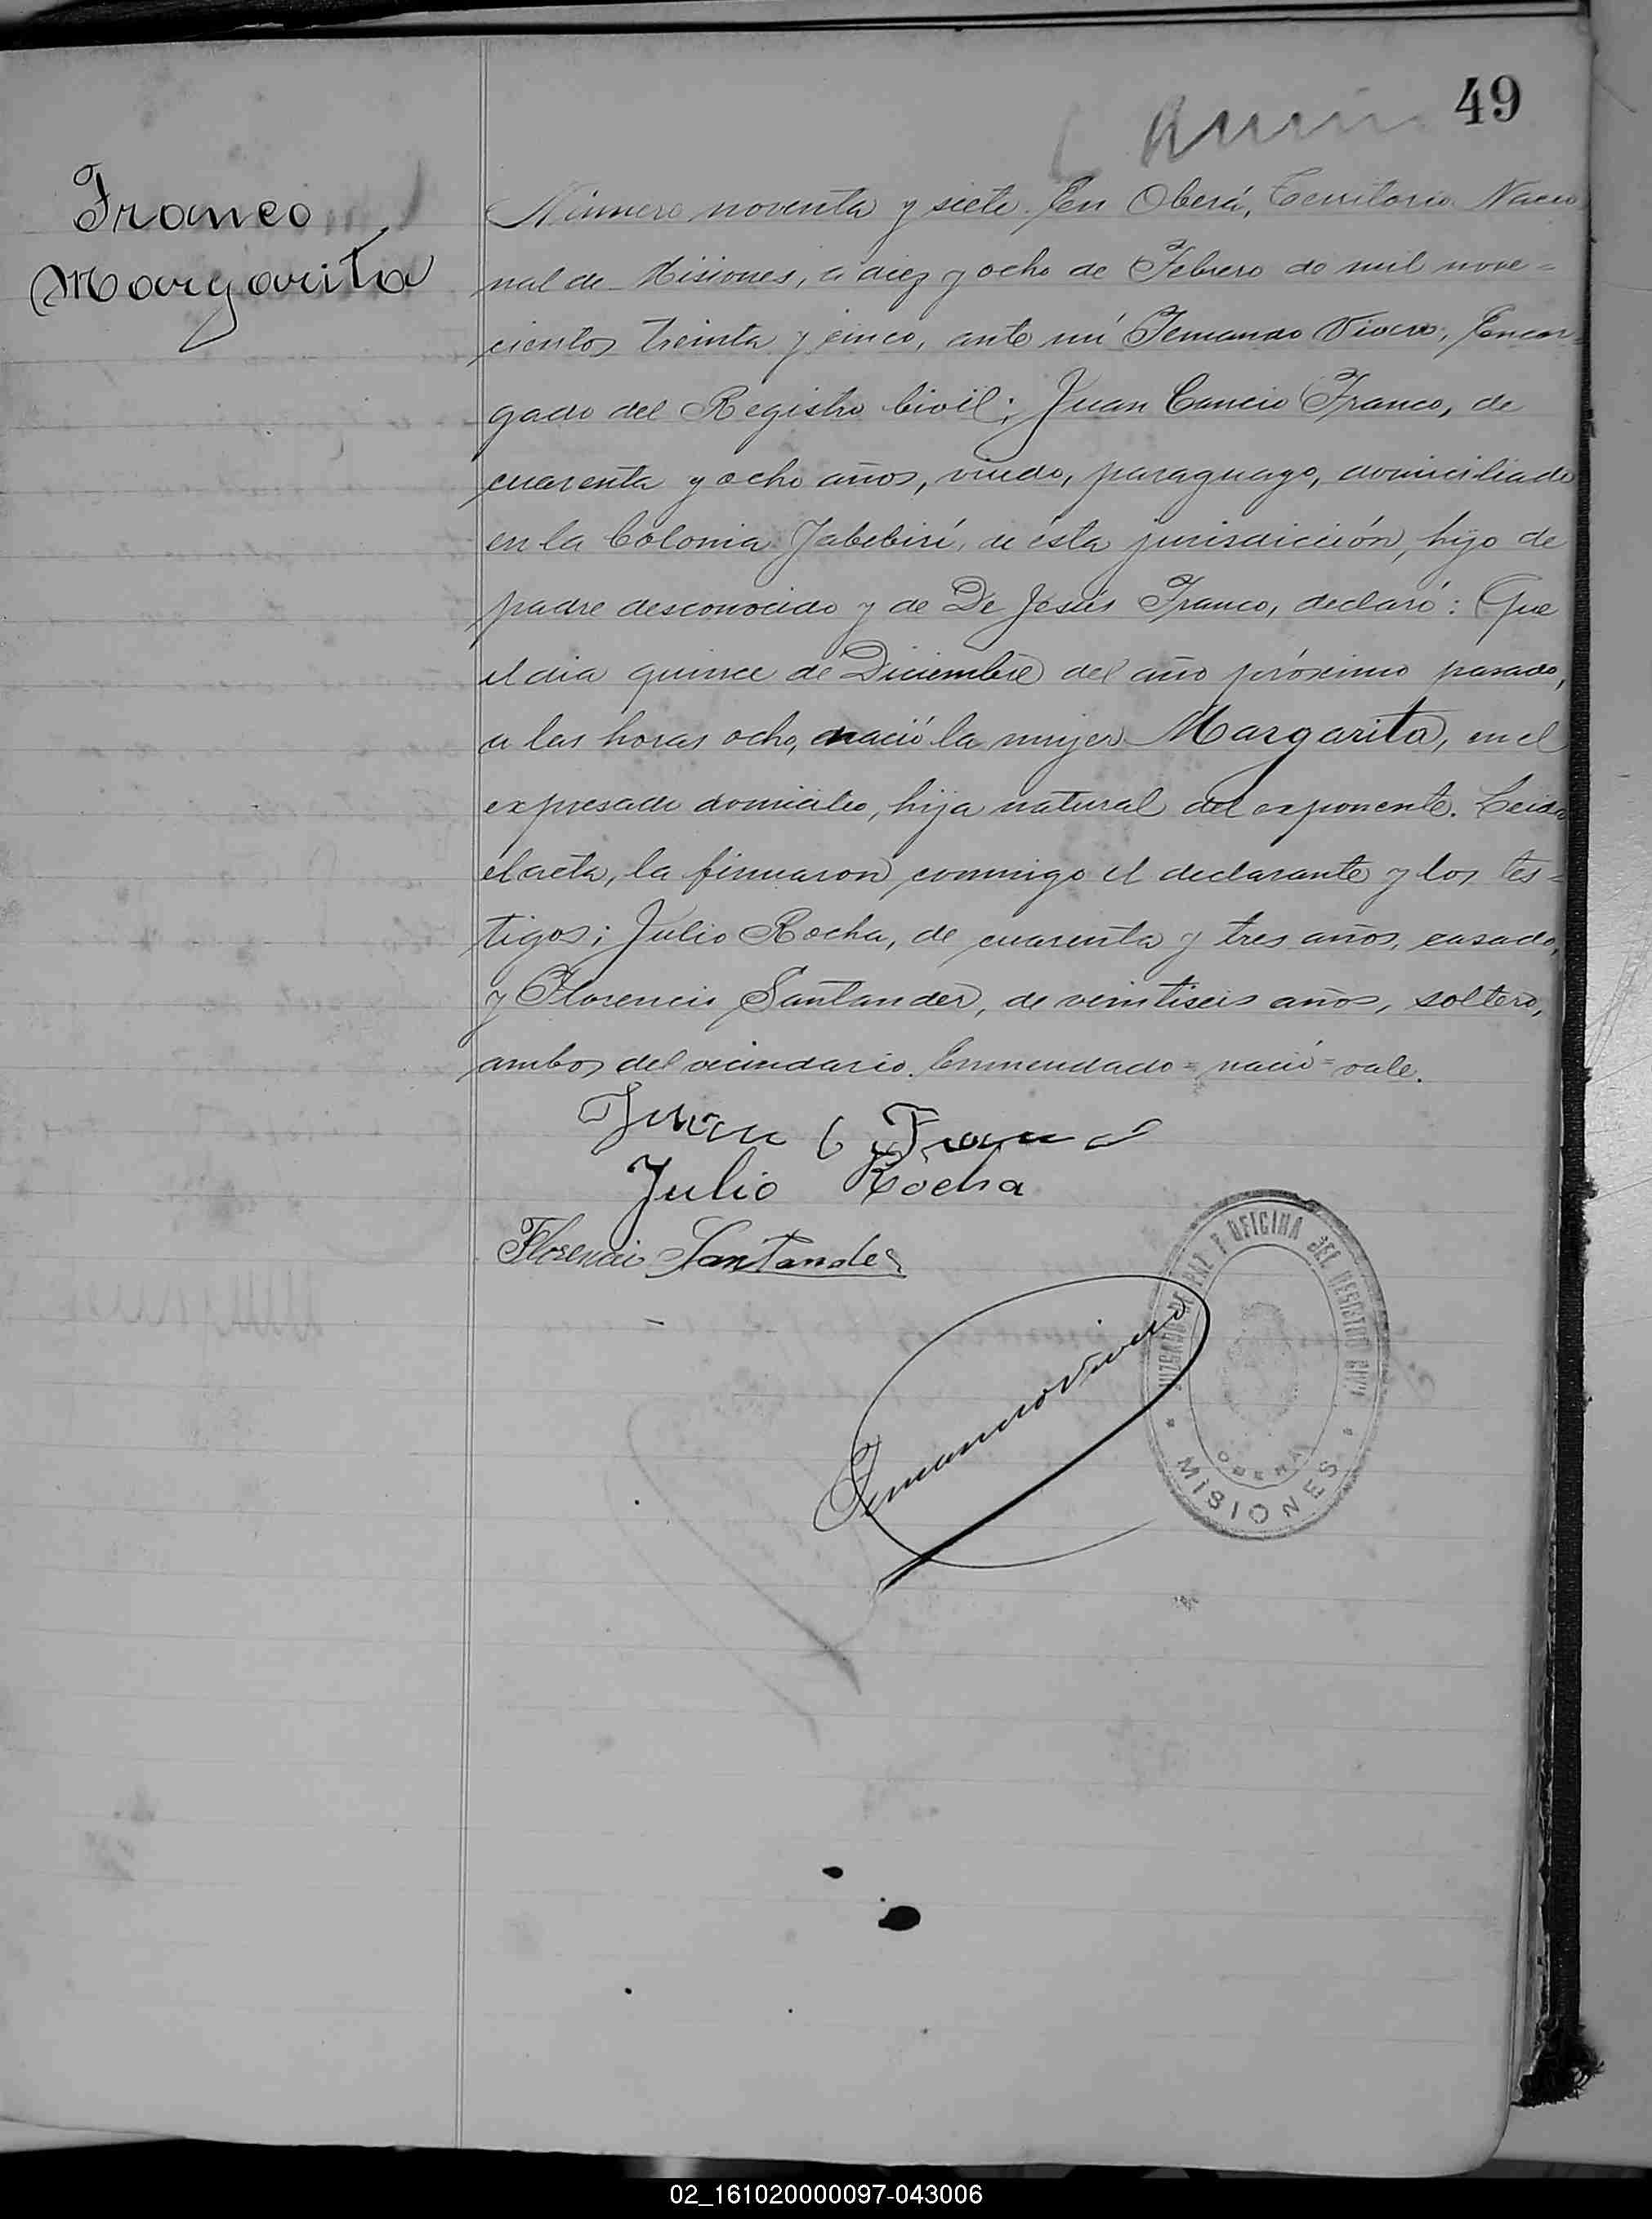 49
Franco
Margarita
Número noventa y siete. En Oberá, Territorio Nacio
nal de Misiones, a diez y ocho de Febrero de mil nove=
cientos treinta y cinco, ante mí Fernando Vivero, Encar=
gado del Registro Civil; Juan Cancio Franco, de
cuarenta y ocho años, viudo, paraguayo, domiciliado
en la Colonia Yabebirí, de ésta jurisdicción, hijo de
padre desconocido y de De Jesús Franco, declaró: Que
el dia quince de Diciembre del año próximo pasado,
a las horas ocho, nació la mujer Margarita, en el
expresado domicilio, hija natural del exponente. Leida
el acta, la firmaron conmigo el declarante y los tes=
tigos; Julio Rocha, de cuarenta y tres años, casado,
y Florencio Santander, de veintiseis años, soltero,
ambos del vecindario. Enmendado = nació = vale.
Juan C Franco
Julio Rocha
Florencio Santander
Fernando Vivero
JUZGADO DE PAZ Y OFICINA DEL REGISTRO CIVIL
OBERÁ
* MISIONES *
02_161020000097-043006